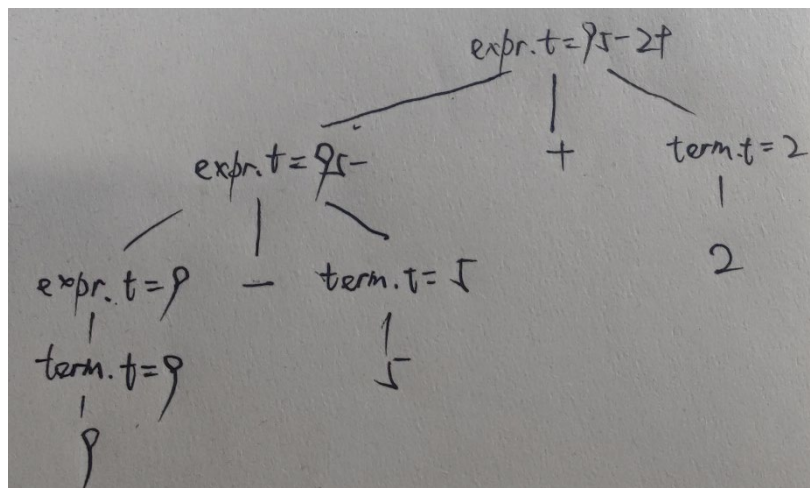 expr.t = 95-2+
expr.t = 95- + term.t = 2
expr.t = 9 - term.t = 5 2
term.t = 9 5
9